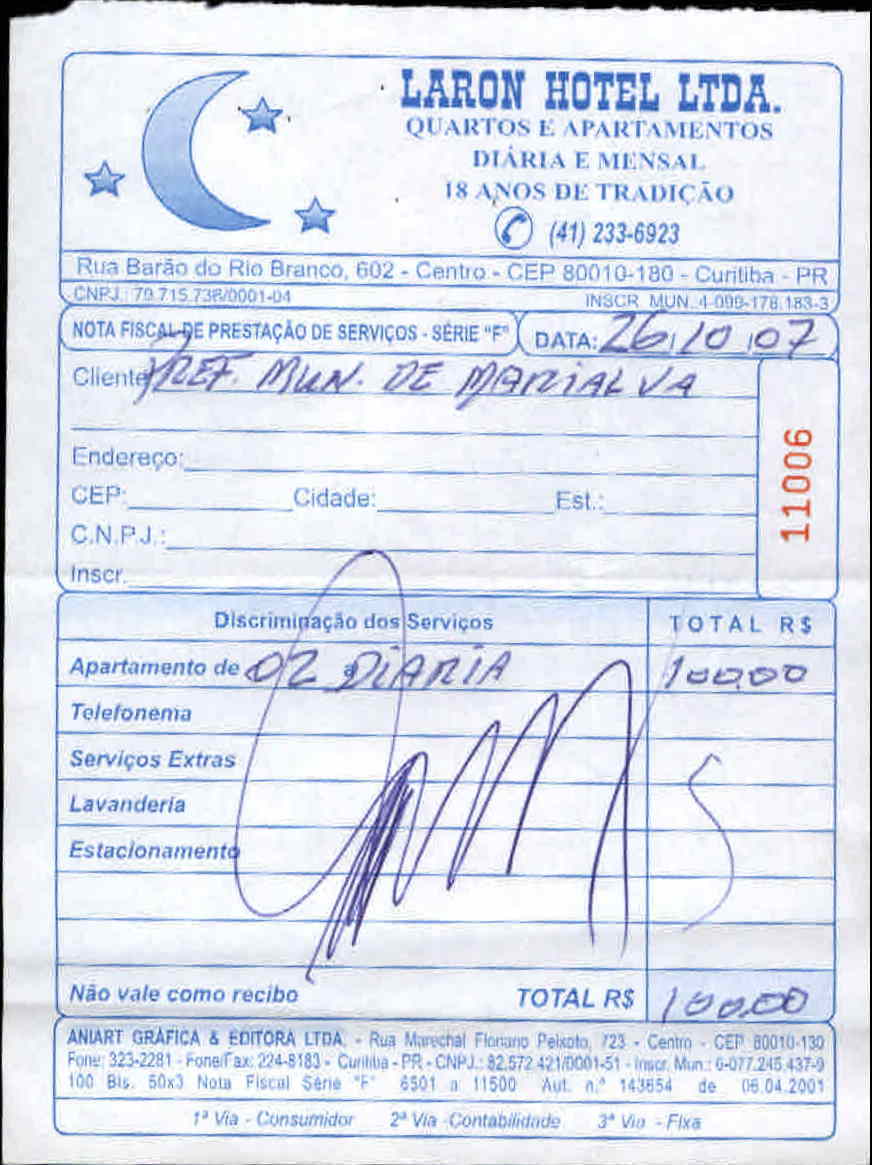 LARON HOTEL LTDA.
QUARTOS E APARTAMENTOS
DIÁRIA E MENSAL
18 ANOS DE TRADIÇÃO
(41) 233-6923
Rua Barão do Rio Branco, 602 - Centro - CEP 80010-180 - Curitiba - PR
CNPJ.: 79.715.736/0001-04 INSCR. MUN. 4-099-178.183-3
NOTA FISCAL DE PRESTAÇÃO DE SERVIÇOS - SÉRIE "F" DATA: 26/10/07
Cliente PREF. MUN. DE MARIALVA
Endereço:
CEP: Cidade: Est.:
C.N.P.J.:
Inscr.
11006
Discriminação dos Serviços TOTAL R$
Apartamento de 02 DIARIA 100,00
Telefonema
Serviços Extras
Lavanderia
Estacionamento
Não vale como recibo TOTAL R$ 100,00
ANIART GRÁFICA & EDITORA LTDA. - Rua Marechal Floriano Peixoto, 723 - Centro - CEP 80010-130
Fone: 323-2281 - Fone/Fax: 224-8183 - Curitiba - PR - CNPJ.: 82.572.421/0001-51 - Inscr. Mun.: 6-077.245.437-9
100 Bls. 50x3 Nota Fiscal Série "F" 6501 a 11500 Aut. n.º 143654 de 06.04.2001
1ª Via - Consumidor 2ª Via - Contabilidade 3ª Via - Fixa